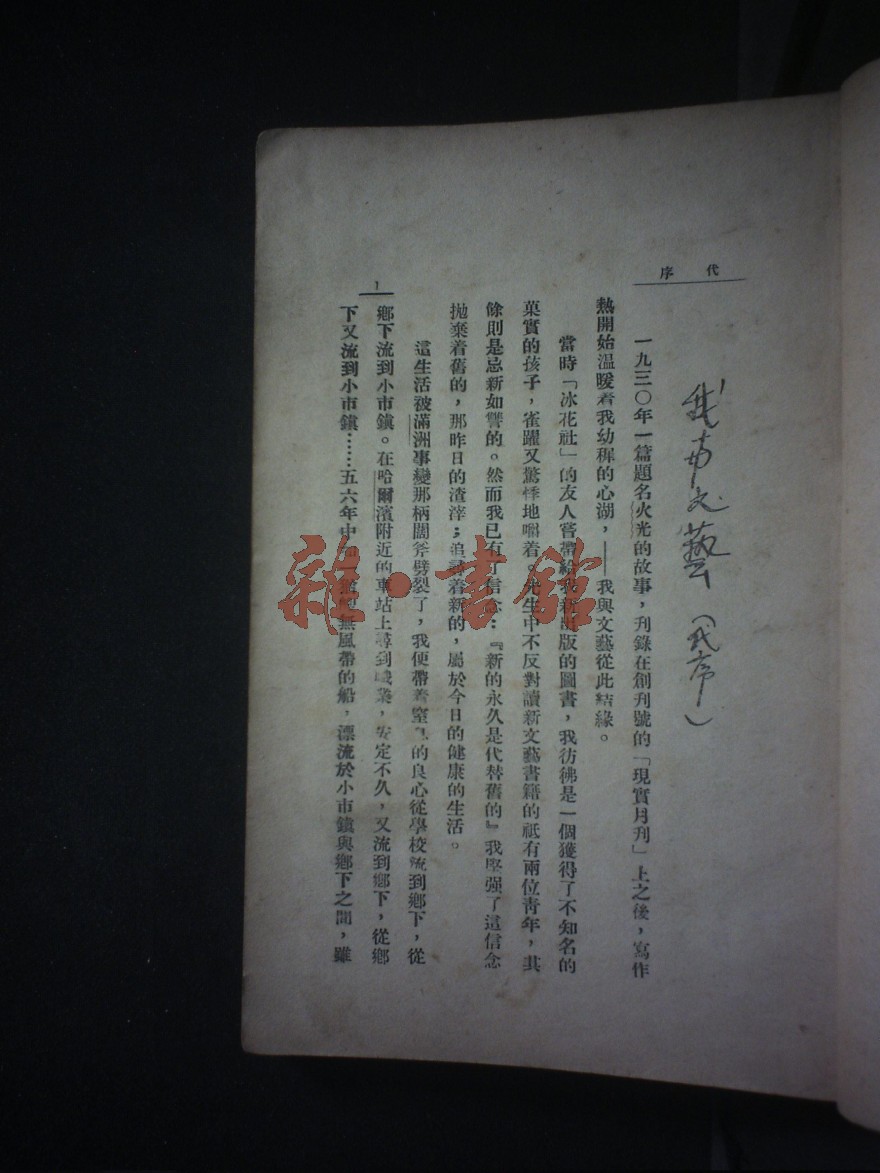 代序
我與文藝(代序)
一九三〇年一篇題名火光的故事，刊錄在創刊號的「現實月刊」上之後，寫作
熱開始溫暖着我幼稺的心湖，——我與文藝從此結緣。
當時「冰花社」的友人嘗帶給我新出版的圖書，我彷彿是一個獲得了不知名的
菓實的孩子，雀躍又驚悸地嚼着。先生中不反對讀新文藝書籍的祇有兩位青年，其
餘則是忌新如讐的。然而我已有了信念：『新的永久是代替舊的』我堅强了這信念
拋棄着舊的，那昨日的渣滓；追尋着新的，屬於今日的健康的生活。
這生活被滿洲事變那柄闊斧劈裂了，我便帶着窒息的良心從學校流到鄉下，從
鄉下流到小市鎮。在哈爾濱附近的車站上尋到職業，安定不久，又流到鄉下，從鄉
下又流到小市鎮……五六年中如一無風帶的船，漂流於小市鎮與鄉下之間，雖
1
雜·書館